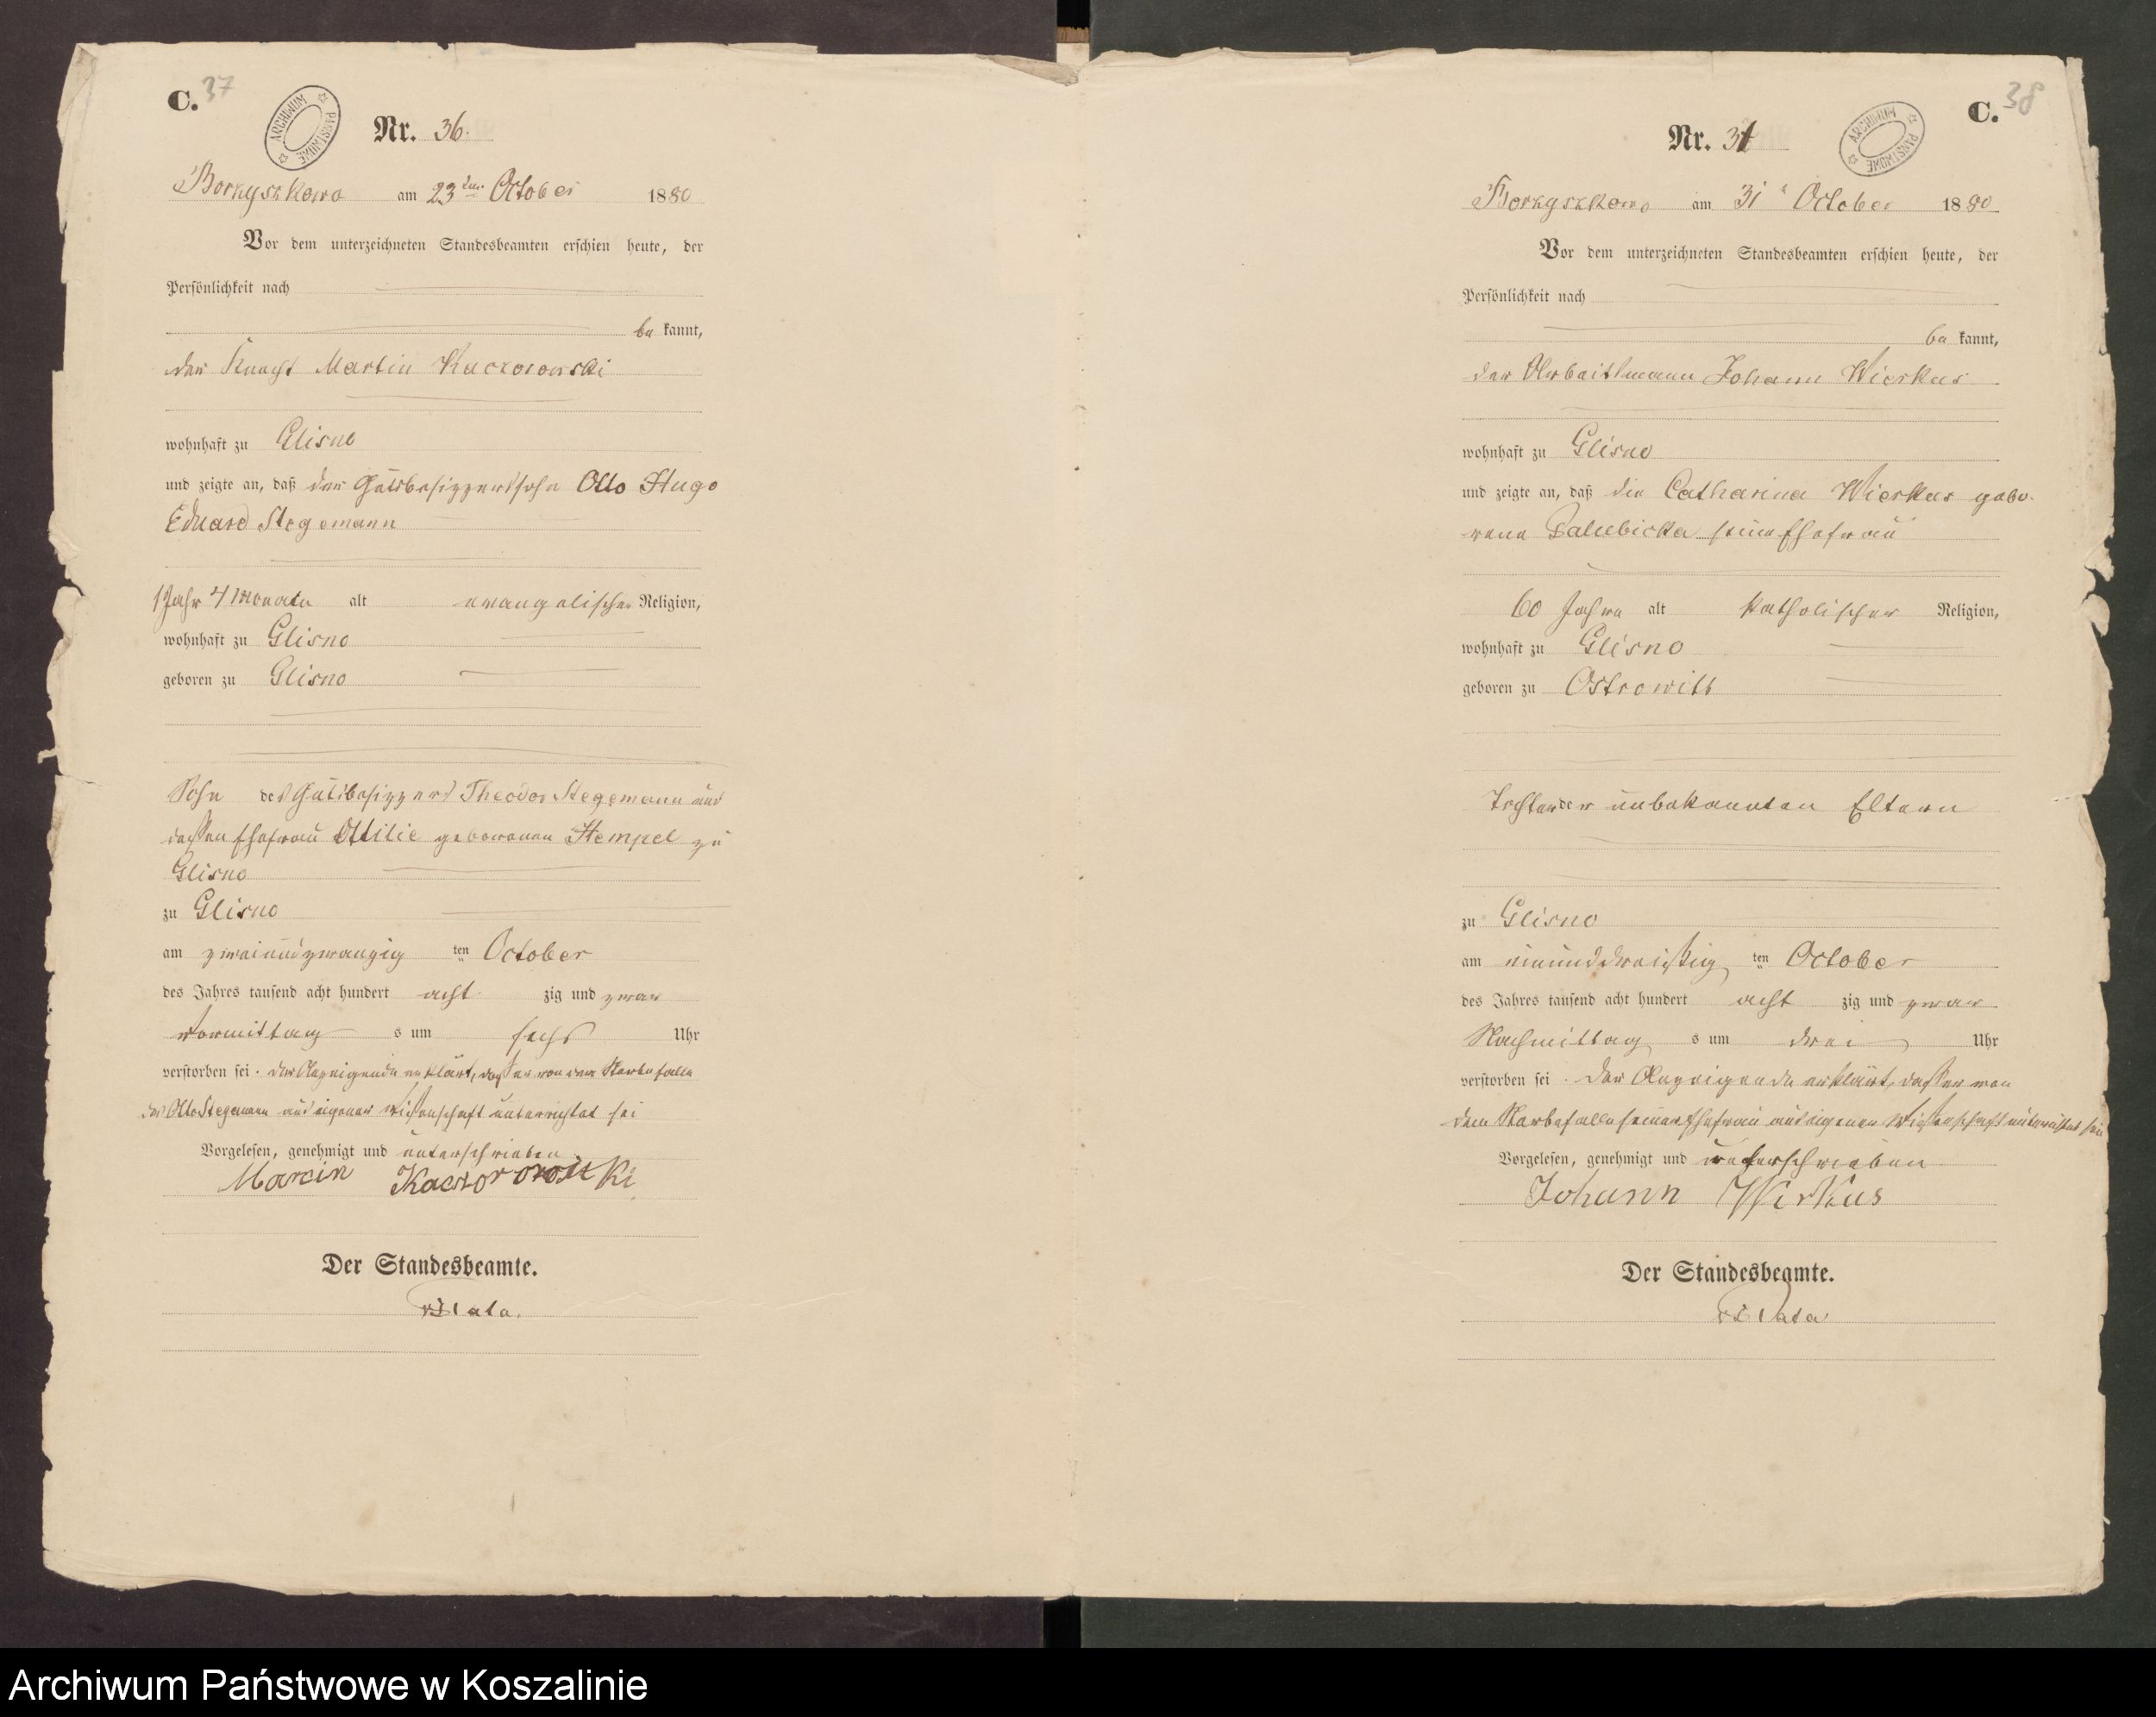 C. 37
ARCHIWUM PAŃSTWOWE
Nr. 36.
Borzyszkowo am 23ten October 1880
Vor dem unterzeichneten Standesbeamten erschien heute, der
Persönlichkeit nach
be kannt,
der Knecht Martin Kaczorowski
wohnhaft zu Glisno
und zeigte an, daß der Gutsbesizzerssohn Otto Hugo
Eduard Stegemann
1 Jahr 4 Monate alt evangelischer Religion,
wohnhaft zu Glisno
geboren zu Glisno
Sohn des Gutsbesizzers Theodor Stegemann und
dessen Ehefrau Ottilie geborenen Hempel zu
Glisno
zu Glisno
am zweiundzwanzig ten October
des Jahres tausend acht hundert acht zig und zwar
Vormittag s um sechs Uhr
verstorben sei. Der Anzeigende erklärt, daß er von dem Sterbefalle
des Otto Stegemann aus eigener Wissenschaft unterrichtet sei
Vorgelesen, genehmigt und unterschrieben
Marcin Kaczorowski
Der Standesbeamte.
C. 38
ARCHIWUM PAŃSTWOWE
Nr. 37
Borzyszkowo am 31 October 1880
Vor dem unterzeichneten Standesbeamten erschien heute, der
Persönlichkeit nach
be kannt,
der Arbeitsmann Johann Wierkus
wohnhaft zu Glisno
und zeigte an, daß die Catharina Wierkus gebo-
rene Palubicka seine Ehefrau
60 Jahre alt katholischer Religion,
wohnhaft zu Glisno
geboren zu Ostrowitt
Tochter der unbekannten Eltern
zu Glisno
am einunddreißig ten October
des Jahres tausend acht hundert acht zig und zwar
Nachmittag s um drei Uhr
verstorben sei. Der Anzeigende erklärt, daß er von
dem Sterbefalle seiner Ehefrau aus eigener Wissenschaft unterrichtet sei
Vorgelesen, genehmigt und unterschrieben
Johann Wirkus
Der Standesbeamte.
Archiwum Państwowe w Koszalinie